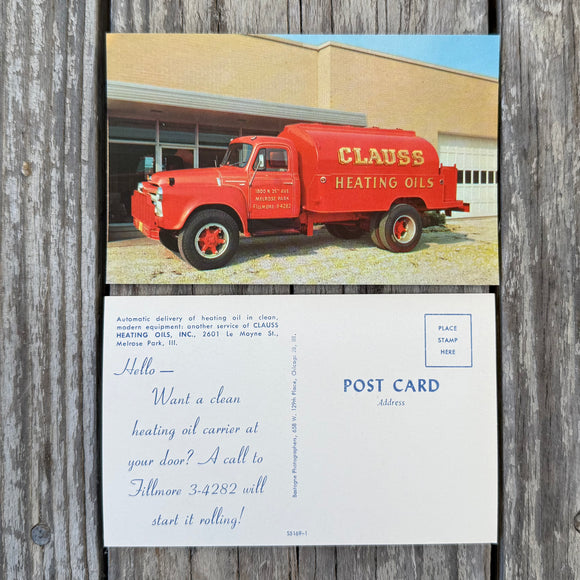 CLAUSS
HEATING OILS
1800 N. 25TH AVE.
MELROSE PARK
FILLMORE 3-4282
Automatic delivery of heating oil in clean,
modern equipment: another service of CLAUSS
HEATING OILS, INC., 2601 Le Moyne St.,
Melrose Park, Ill.
Hello —
Want a clean
heating oil carrier at
your door? A call to
Fillmore 3-4282 will
start it rolling!
Bastogne Photographers, 658 W. 129th Place, Chicago, Ill.
S5169-1
PLACE
STAMP
HERE
POST CARD
Address